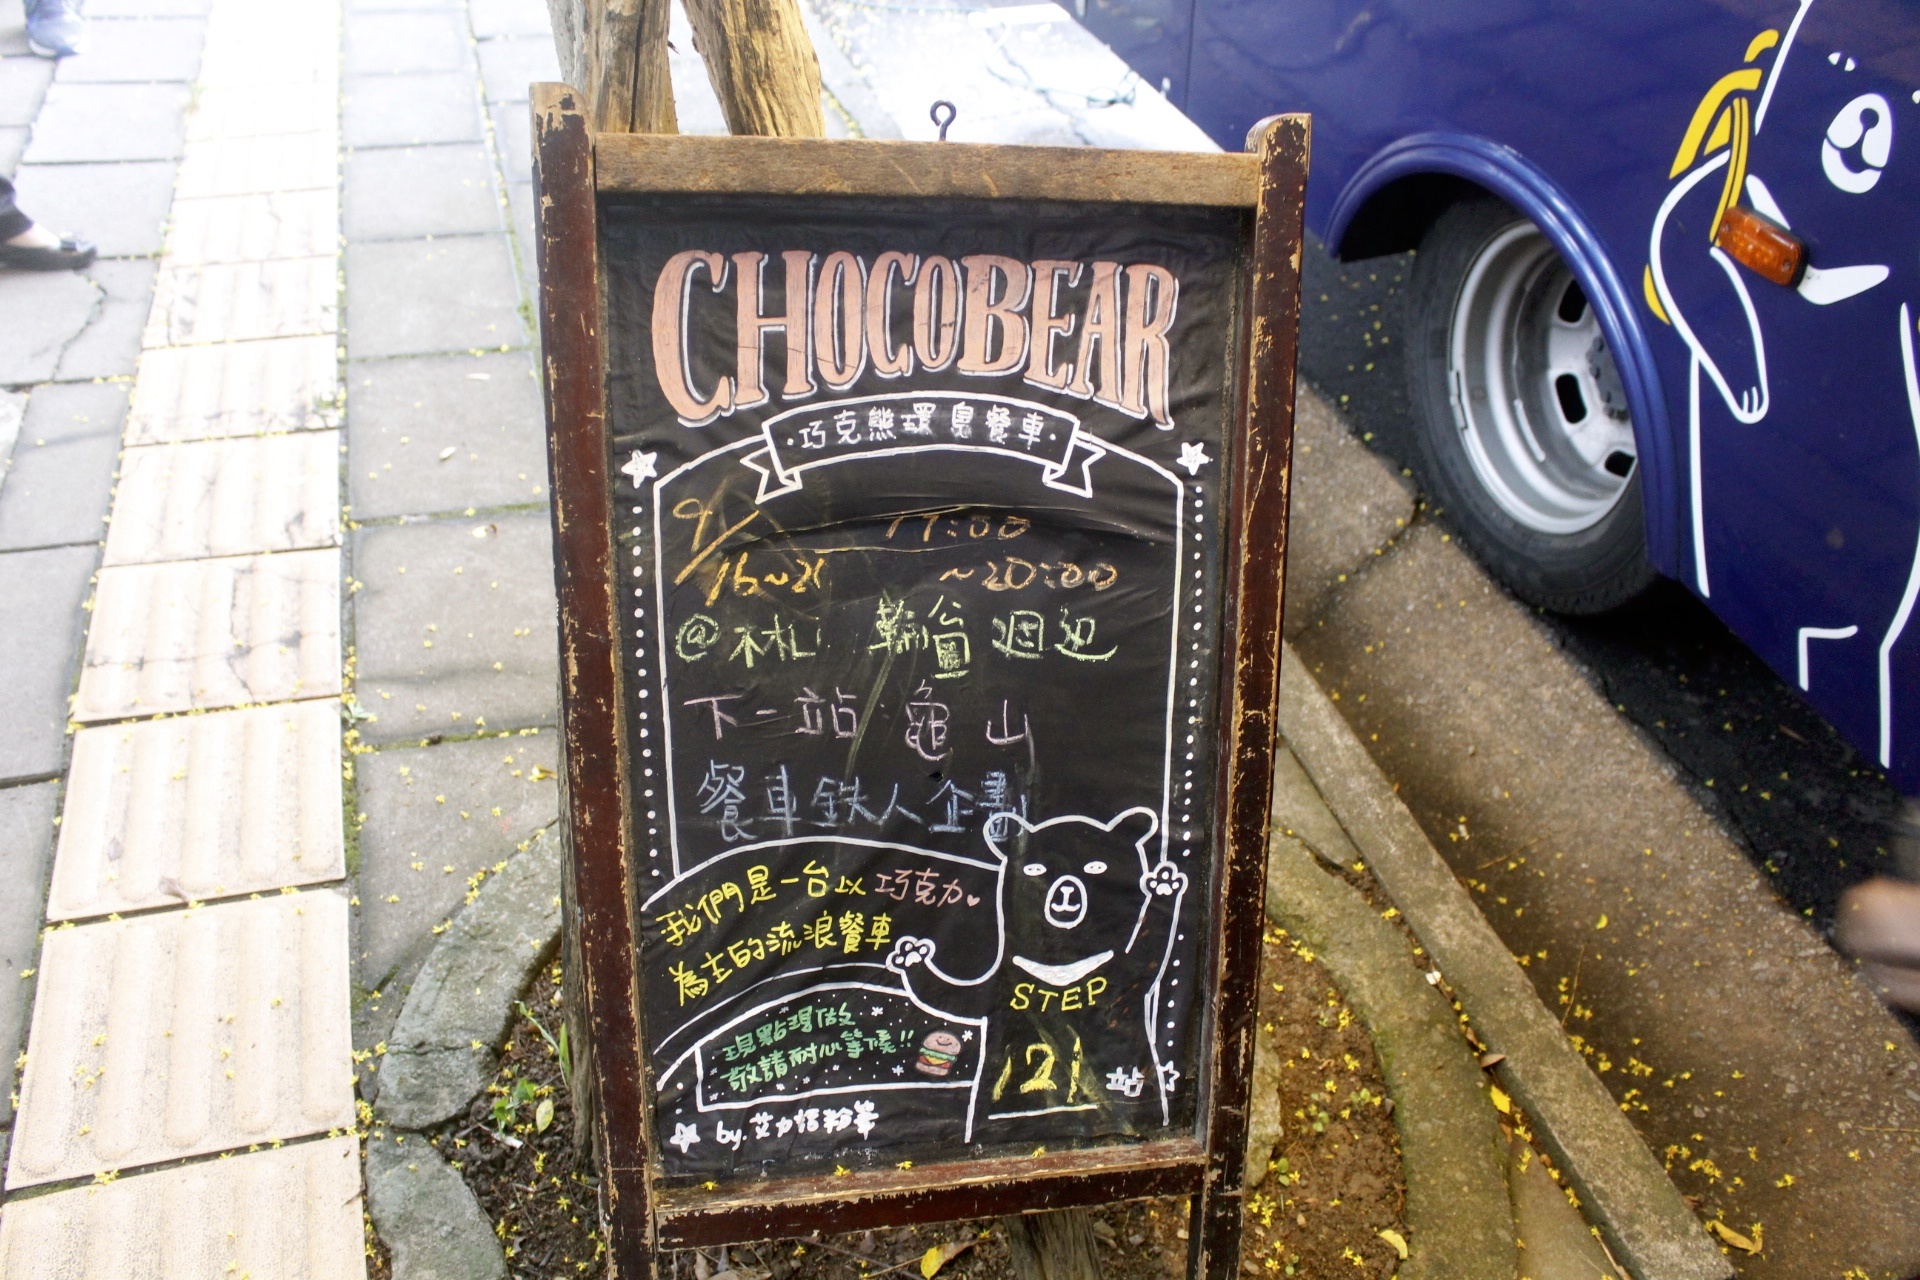 CHOCOBEAR
·巧克熊環島餐車·
9/16~21 11:00
~20:00
下一站:龜山
餐車鉄人企劃
我們是一台以巧克力
為主的流浪餐車
STEP
121站
現點現做
敬請耐心等候!!